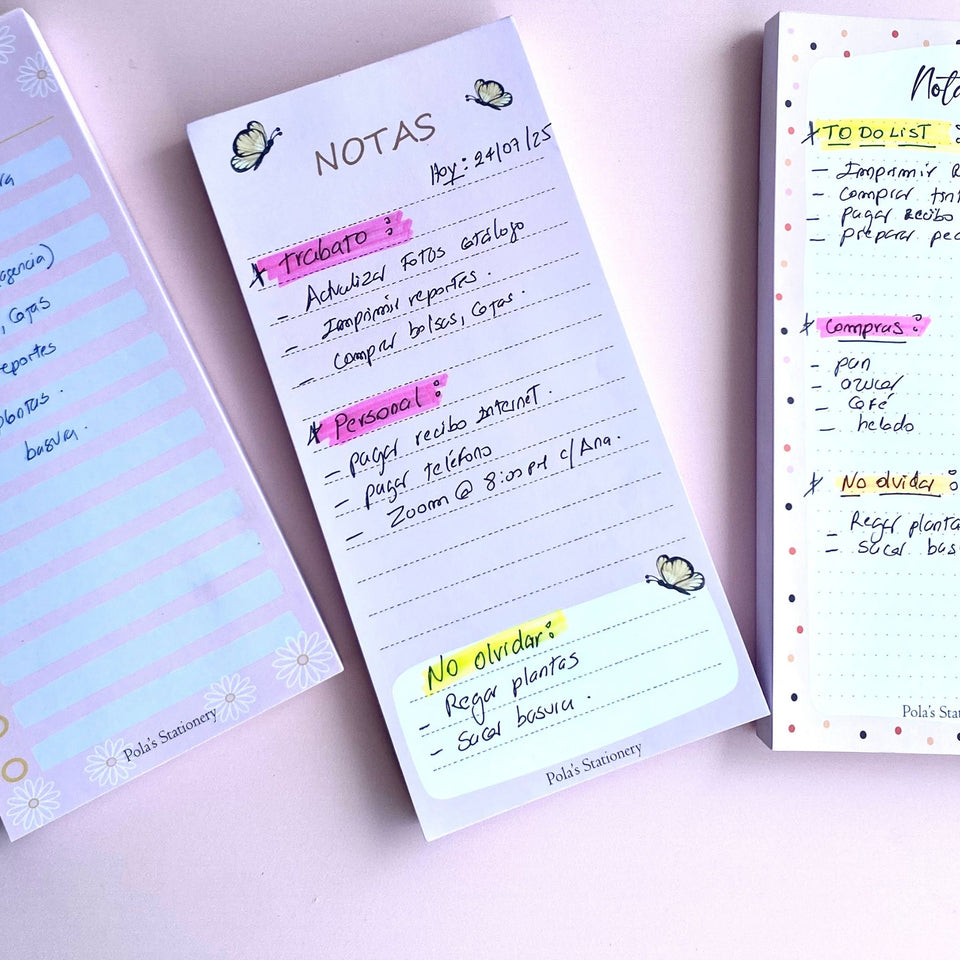 agencia)
, Cajas
reportes
plantas.
basura.
Pola's Stationery
NOTAS
Hoy: 24/07/25
* trabajo:
- Actualizar Fotos catálogo
- Imprimir reportes.
- Comprar bolsas, Cajas.
* Personal:
- pagar recibo Internet.
- pagar teléfono
- Zoom @ 8:00 PM c/Ana.
No olvidar:
- Regar plantas
- Sacar basura.
Pola's Stationery
Nota
* TO DO LIST:
- Imprimir R
- Comprar
- pagar recibo
- preparar
* Compras:
- pan
- azucar
- Café
- helado
* No olvidar:
- Regar planta
- Sacar bas
Pola's Sta